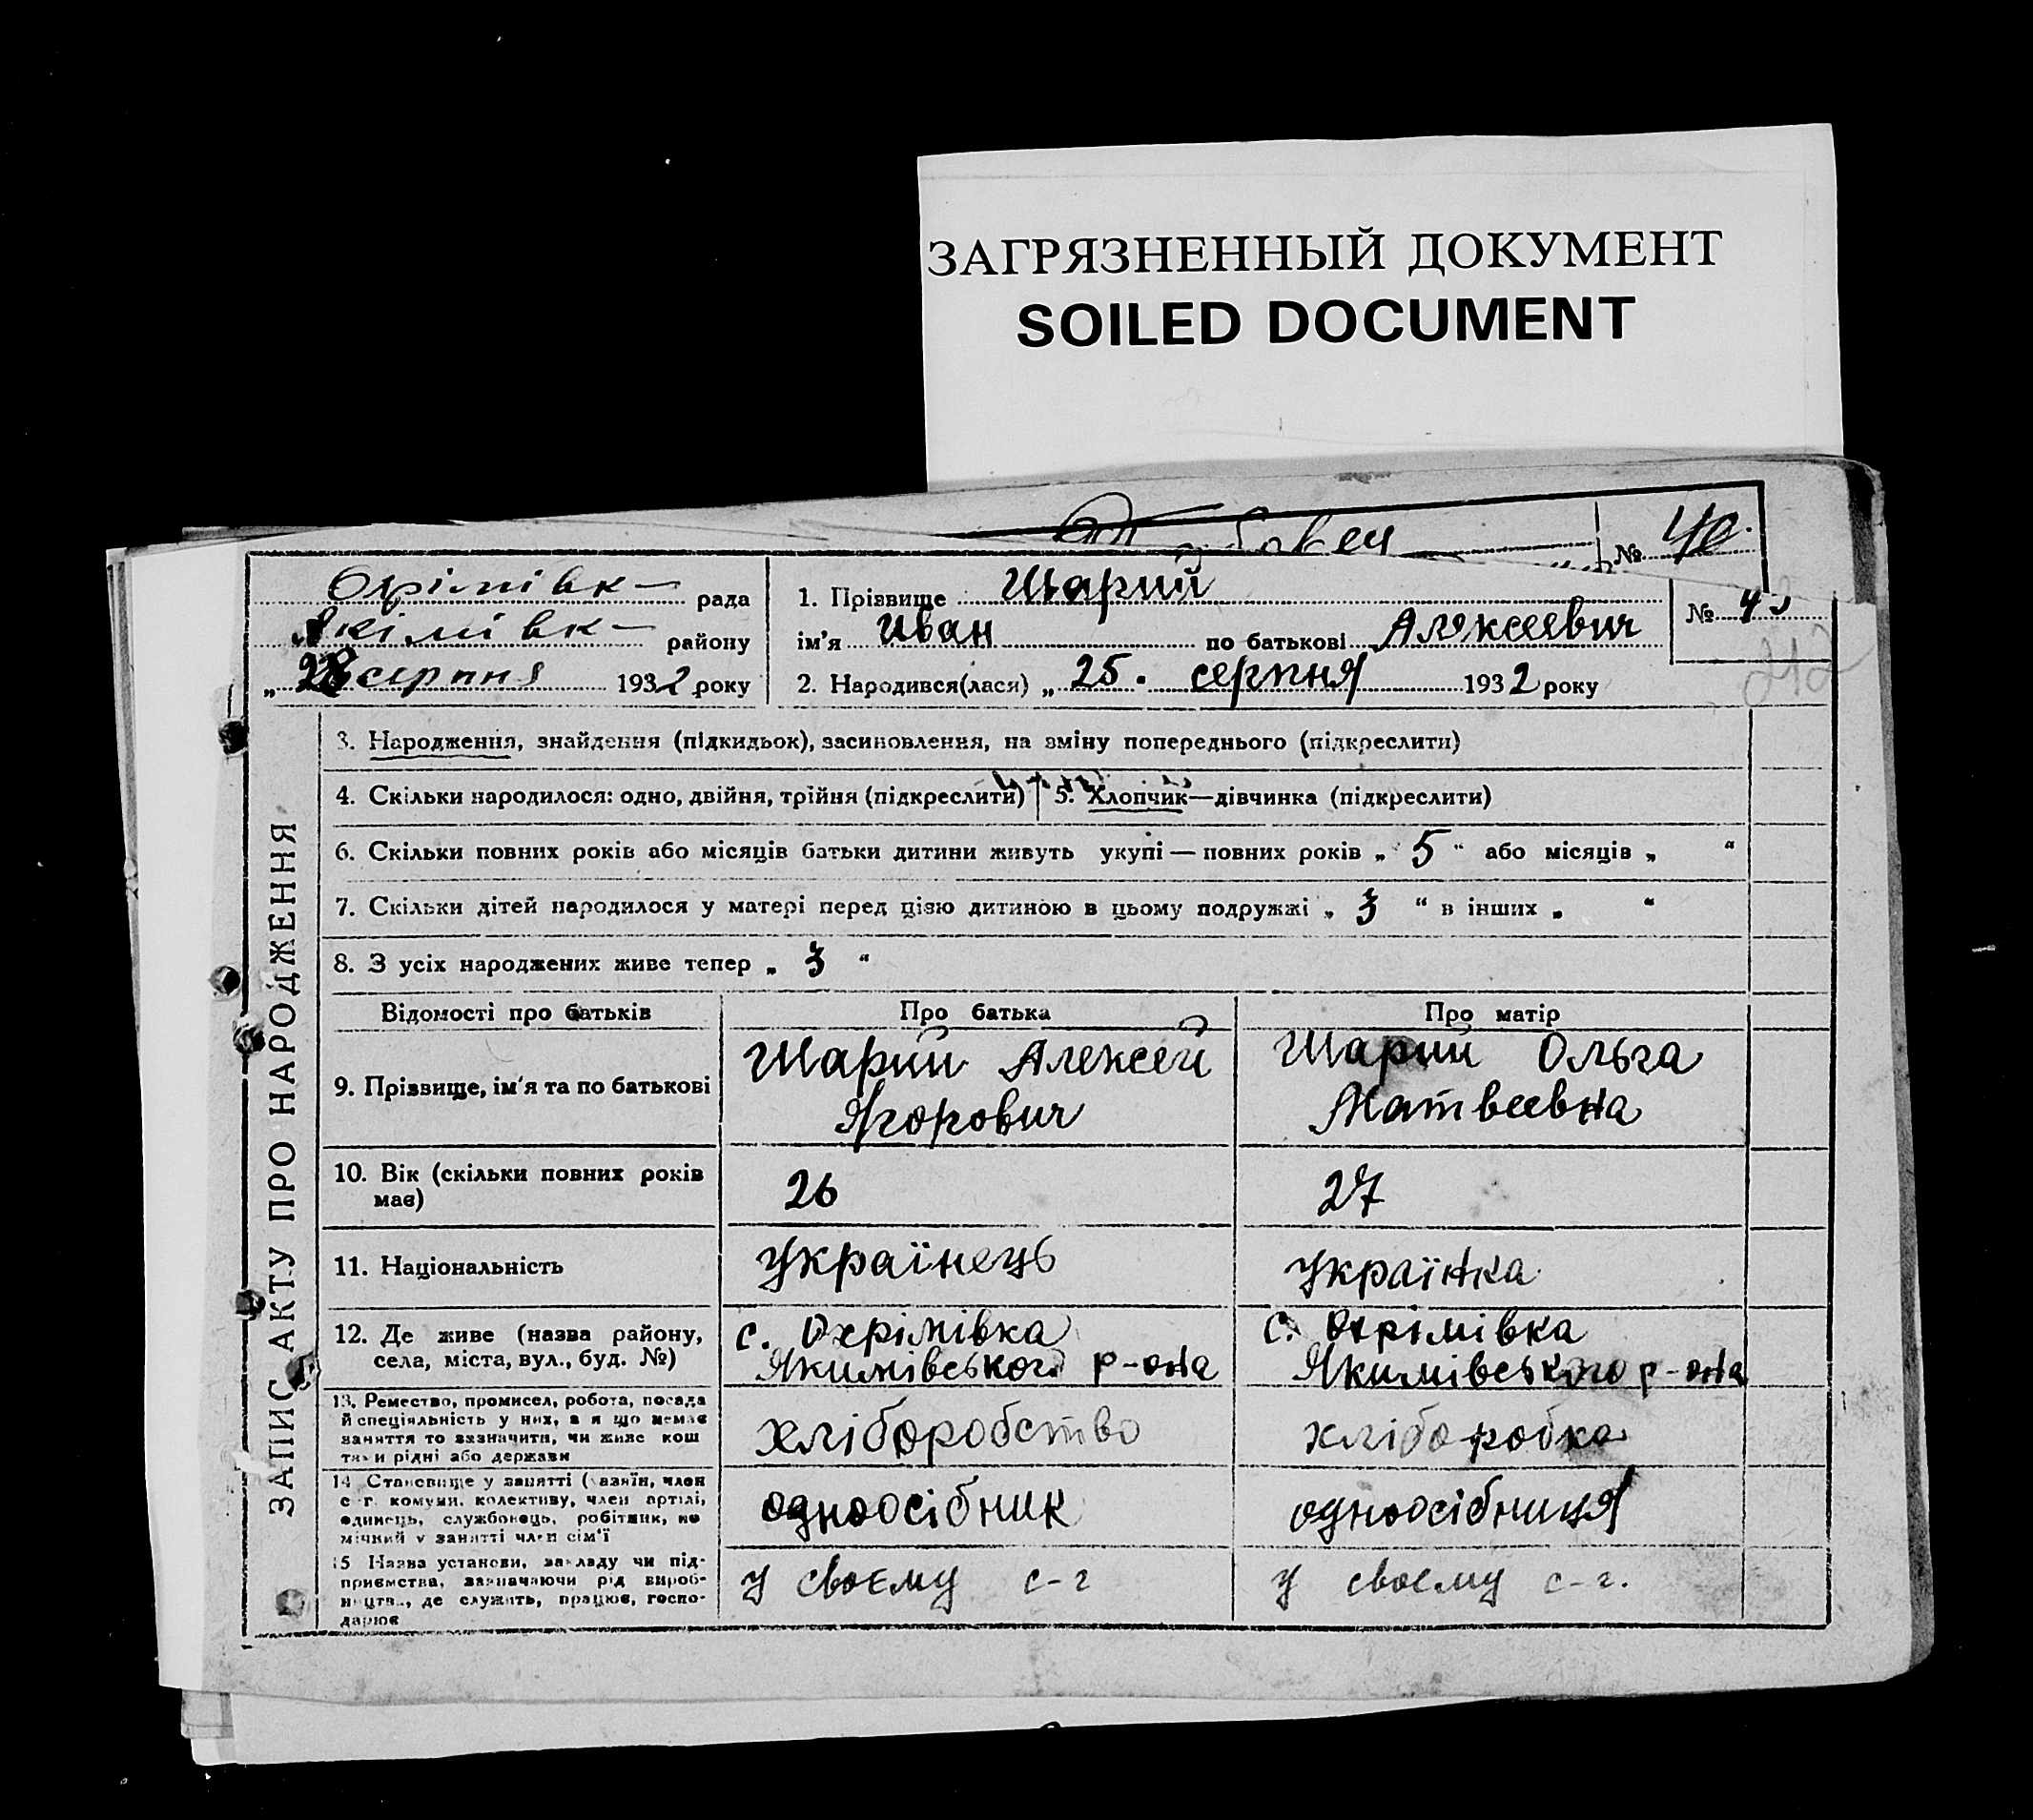 ЗАГРЯЗНЕННЫЙ ДОКУМЕНТ
SOILED DOCUMENT
№ 40.
Охрімівк— рада
Якімівк— району
„28 серпня 1932 року
1. Прізвище Шарий
ім'я Иван по батькові Алексеевич
2. Народився(лася) „25. серпня 1932 року
№ 43
212
ЗАПИС АКТУ ПРО НАРОДЖЕННЯ
3. Народження, знайдення (підкидьок), засиновлення, на зміну попереднього (підкреслити)
4. Скільки народилося: одно, двійня, трійня (підкреслити) 5. Хлопчик—дівчинка (підкреслити)
6. Скільки повних років або місяців батьки дитини живуть укупі — повних років „ 5 “ або місяців „ “
7. Скільки дітей народилося у матері перед цією дитиною в цьому подружжі „ 3 “ в інших „ “
8. З усіх народжених живе тепер „ 3 “
Відомості про батьків Про батька Про матір
9. Прізвище, ім'я та по батькові
Шарий Алексей
Ягорович
Шарий Ольга
Матвеевна
10. Вік (скільки повних років
має)
26
27
11. Національність
українець
українка
12. Де живе (назва району,
села, міста, вул., буд. №)
с. Охрімівка
Якимівського р-она
с. Охрімівка
Якимівського р-она
13. Ремество, промисел, робота, посада
й спеціяльність у них, а я що немає
заняття то зазначити, чи живе кош
тами рідні або держави
хліборобство
хліборобка
14 Становище у занятті (хазяїн, член
с-г. комуни, колективу, член артілі,
одинець, службовець, робітник, по
мічний у занятті член сім'ї
одноосібник
одноосібниця
15 Назва установи, закладу чи під-
приємства, зазначаючи рід вироб-
ництва, де служить, працює, госпо-
дарює
у своєму с-г
у своєму с-г.